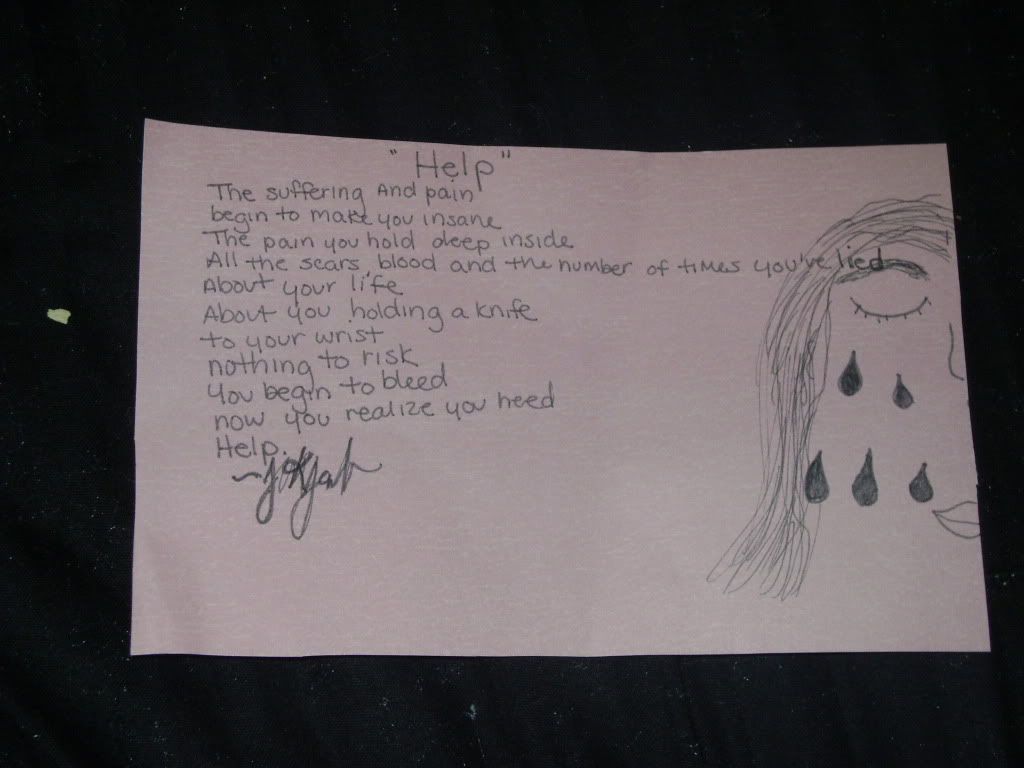 "Help"
The suffering And pain
begin to make you insane
The pain you hold deep inside
All the scars, blood and the number of times you've lied
About your life
About you holding a knife
to your wrist
nothing to risk
You begin to bleed
now you realize you need
Help.